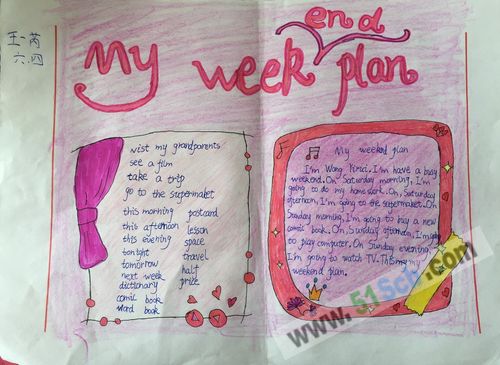 王一芮
六.四
My week end plan
vist my grandparents
see a film
take a trip
go to the supermaket
this morning postcard
this afternoon lesson
this evening space
tonight travel
tomorrow half
next week price
dictionary
comic book
word book
My weekend plan
I'm Wang I'm have a busy
weekend. On, Saturday morning, I'm
going to do my homework. On, Saturday
afternoon, I'm going to the supermaket. On
Sunday morning, I'm going to buy a new
comic book. On, Sunday afternoon, I'm going
to play computer. On Sunday evening,
I'm going to watch TV. my
weekend plan.
www.51Sch.com